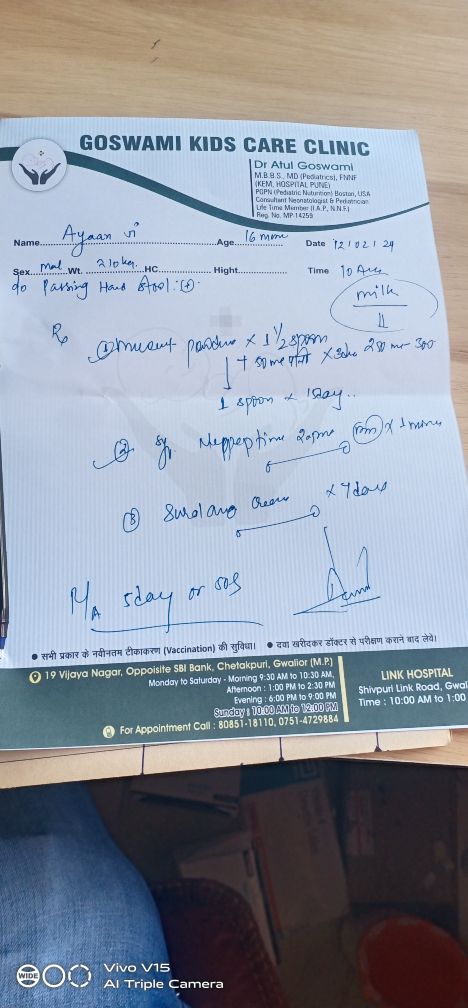 GOSWAMI KIDS CARE CLINIC
Dr Atul Goswami
M.B.B.S., MD (Pediatrics), FNNF
(KEM, HOSPITAL PUNE)
PGPN (Pediatric Nutunition) Boston, USA
Consultant Neonatologist & Pediatrician
Life Time Member (I.A.P., N.N.F.)
Reg. No. MP-14259
Name Ayaan Age 16 Date 12/02/24
Sex Wt. HC Hight Time 10
Passing Hard Stool (+)
milk
Rx
① × 1 1/2 spoon
+ 50 ml पानी
1 spoon × 1 day
② Sy. ×
③ Cream × 7 days
5 day or SOS
• सभी प्रकार के नवीनतम टीकाकरण (Vaccination) की सुविधा। • दवा खरीदकर डॉक्टर से परीक्षण कराने बाद लेवें।
19 Vijaya Nagar, Oppoisite SBI Bank, Chetakpuri, Gwalior (M.P.)
Monday to Saturday - Morning 9:30 AM to 10:30 AM,
Afternoon : 1:00 PM to 2:30 PM
Evening : 6:00 PM to 9:00 PM
Sunday : 10:00 AM to 12:00 PM
For Appointment Call : 80851-18110, 0751-4729884
LINK HOSPITAL
Shivpuri Link Road, Gwal
Time : 10:00 AM to 1:00
WIDE
Vivo V15
AI Triple Camera